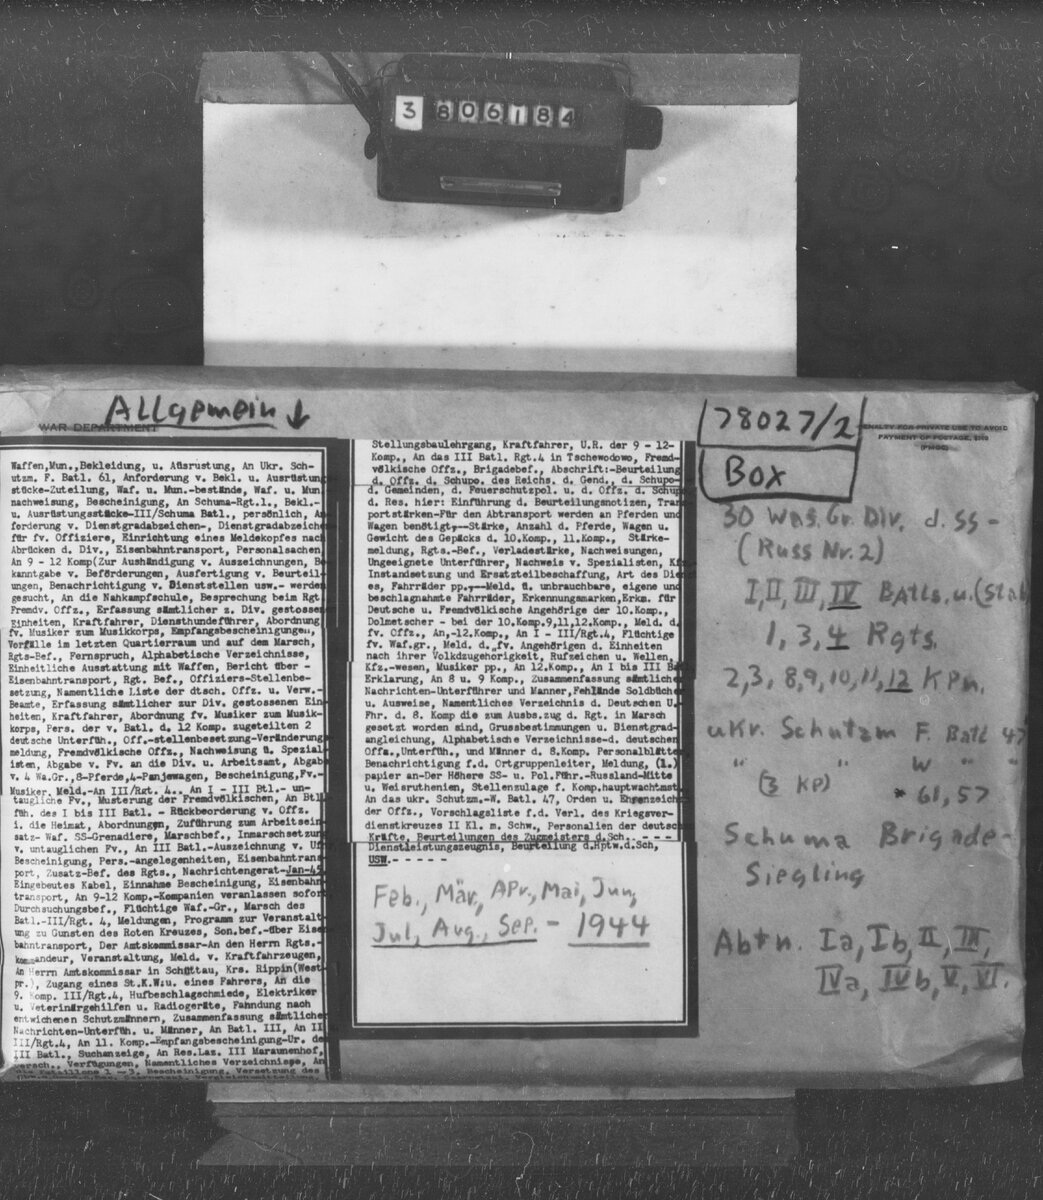 3 806184
Allgemein ↓
WAR DEPARTMENT
Waffen,Mun.,Bekleidung, u. Aüsrustung, An Ukr. Sch-
utzm. F. Batl. 61, Anforderung v. Bekl. u. Ausrüstung
stücke-Zuteilung, Waf. u. Mun.-bestände, Waf. u. Mun.
nachweisung, Bescheinigung, An Schuma-Rgt.1., Bekl.-
u. Ausrüstungsstücke-III/Schuma Batl., persönlich, An
forderung v. Dienstgradabzeichen-, Dienstgradabzeiche
für fv. Offiziere, Einrichtung eines Meldekopfes nach
Abrücken d. Div., Eisenbahntransport, Personalsachen,
An 9 - 12 Komp(Zur Aushändigung v. Auszeichnungen, Be
kanntgabe v. Beförderungen, Ausfertigung v. Beurteil-
ungen, Benachrichtigung v. Dienststellen usw.- werden
gesucht, An die Nahkampfschule, Besprechung beim Rgt.
Fremdv. Offz., Erfassung sämtlicher z. Div. gestossen
Einheiten, Kraftfahrer, Diensthundeführer, Abordnung
fv. Musiker zum Musikkorps, Empfangsbescheinigungen,
Vorfälle im letzten Quartierraum und auf dem Marsch,
Rgts-Bef., Fernspruch, Alphabetische Verzeichnisse,
Einheitliche Ausstattung mit Waffen, Bericht über -
Eisenbahntransport, Rgt. Bef., Offiziers-Stellenbe-
setzung, Namentliche Liste der dtsch. Offz. u. Verw.-
Beamte, Erfassung sämtlicher zur Div. gestossenen Ein
heiten, Kraftfahrer, Abordnung fv. Musiker zum Musik-
korps, Pers. der v. Batl. d. 12 Komp. zugeteilten 2
deutsche Unterfüh., Off.-stellenbesetzung-Veränderung
meldung, Fremdvölkische Offz., Nachweisung ü. Spezial
isten, Abgabe v. Fv. an die Div. u. Arbeitsamt, Abgabe
v. 4 Wa.Gr.,8-Pferde,4-Panjewagen, Bescheinigung,Fv.-
Musiker, Meld.-An III/Rgt. 4.. An I - III Btl.- un-
taugliche Fv., Musterung der Fremdvölkischen, An Btl.
füh. des I bis III Batl. - Rückbeorderung v. Offz.
i. die Heimat, Abordnungen, Zuführung zum Arbeitsein
satz- Waf. SS-Grenadiere, Marschbef., Inmarschsetzung
v. untauglichen Fv., An III Batl.-Auszeichnung v. Uf
Bescheinigung, Pers.-angelegenheiten, Eisenbahntrans
port, Zusatz-Bef. des Rgts., Nachrichtengerat-Jan-45
Eingebeutes Kabel, Einnahme Bescheinigung, Eisenbahn
transport, An 9-12 Komp.-Kompanien veranlassen sofor
Durchsuchungsbef., Flüchtige Waf.-Gr., Marsch des
Batl.-III/Rgt. 4, Meldungen, Programm zur Veranstalt
ung zu Gunsten des Roten Kreuzes, Son.bef.-über Eise
bahntransport, Der Amtskommissar-An den Herrn Rgts.-
kommandeur, Veranstaltung, Meld. v. Kraftfahrzeugen,
An Herrn Amtskommissar in Schüttau, Krs. Rippin(West
pr.), Zugang eines St.K.W:u. eines Fahrers, An die
9. Komp. III/Rgt.4, Hufbeschlagschmiede, Elektriker
u. Veterinärgehilfen u. Radiogeräte, Fahndung nach
entwichenen Schutzmännern, Zusammenfassung sämtliche
Nachrichten-Unterfüh. u. Männer, An Batl. III, An II
III/Rgt.4, An 11. Komp.-Empfangsbescheinigung-Ur. de
III Batl., Suchanzeige, An Res.Laz. III Maraunenhof,
versch., Verfügungen, Namentliches Verzeichnisse, An
die Bataillone 1 - 3, Bescheinigung, Versetzung des
Stellungsbaulehrgang, Kraftfahrer, U.R. der 9 - 12-
Komp., An das III Batl. Rgt.4 in Tschewodowo, Fremd-
völkische Offz., Brigadebef., Abschrift:-Beurteilung
d. Offz. d. Schupo. des Reichs. d. Gend., d. Schupo-
d. Gemeinden, d. Feuerschutzpol. u. d. Offz. d. Schup
d. Res. hier: Einführung d. Beurteilungsnotizen, Tran
portstärken-Für den Abtransport werden an Pferden und
Wagen benötigt,--Stärke, Anzahl d. Pferde, Wagen u.
Gewicht des Gepäcks d. 10.Komp., 11.Komp., Stärke-
meldung, Rgts.-Bef., Verladestärke, Nachweisungen,
Ungeeignete Unterführer, Nachweis v. Spezialisten, Kf
Instandsetzung und Ersatzteilbeschaffung, Art des Die
es, Fahrräder pp.,--Meld. ü. unbrauchbare, eigene und
beschlagnahmte Fahrräder, Erkennungsmarken,Erkm. für
Deutsche u. Fremdvölkische Angehörige der 10.Komp.,
Dolmetscher - bei der 10.Komp.9,11,12.Komp., Meld. d.
fv. Offz., An,-12.Komp., An I - III/Rgt.4, Flüchtige
fv. Waf.gr., Meld. d.„fv. Angehörigen d. Einheiten
nach ihrer Volkdzugehörigkeit, Rufzeichen u. Wellen,
Kfz.-wesen, Musiker pp., An 12.Komp., An I bis III B
Erklarung, An 8 u. 9 Komp., Zusammenfassung sämtliche
Nachrichten-Unterführer und Manner,Fehlände Soldbüche
u. Ausweise, Namentliches Verzeichnis d. Deutschen U.
Fhr. d. 8. Komp die zum Ausbs.zug d. Rgt. in Marsch
gesetzt worden sind, Grussbestimmungen u. Bienstgrad-
angleichung, Alphabetische Verzeichnisse-d. deutschen
Offa.,Unterfüh., und Männer d. 8.Komp. Personalblätte
Benachrichtigung f.d. Ortgruppenleiter, Meldung, (1.)
papier an-Der Höhere SS- u. Pol.Führ.-Russland-Mitte
u. Weisruthenien, Stellenzulage f. Komp.hauptwachtmst.
An das ukr. Schutzm.-W. Batl. 47, Orden u. Ehrenzeich
der Offz., Vorschlagsliste f.d. Verl. des Kriegsver-
dienstkreuzes II Kl. m. Schw., Personalien der deutsch
Kräfte, Beurteilungen des Zugmeisters d.Sch. - - - -
Dienstleistungszeugnis, Beurteilung d.Hptw.d.Sch,
USW.- - - - -
Feb., Mär, APr., Mai, Jun,
Jul, Aug., Sep. - 1944
78027/2
Box
PENALTY FOR PRIVATE USE TO AVOID
PAYMENT OF POSTAGE, $300
(PMGC)
30 Waf. Gr. Div. d. SS -
(Russ Nr. 2)
I, II, III, IV Batls. u. (Stab
1, 3, 4 Rgts.
2, 3, 8, 9, 10, 11, 12 KPn.
ukr. Schutzm F. Batl 47
" " W " "
(3 KP) * 61, 57
Schuma Brigade-
Siegling
Abtn. Ia, Ib, II, III,
IVa, IVb, V, VI.